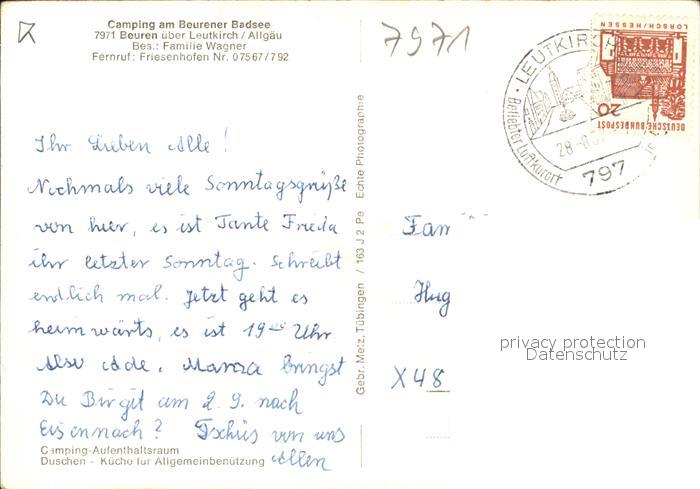 Camping am Beurener Badsee
7971 Beuren über Leutkirch / Allgäu
Bes.: Familie Wagner
Fernruf: Friesenhofen Nr. 07567/792
7971
LEUTKIRCH
Beliebter Luftkurort
28-8
797
LORSCH/HESSEN
20
DEUTSCHE BUNDESPOST
Ihr Lieben Alle!
Nochmals viele Sonntagsgrüße
von hier, es ist Tante Frieda
ihr letzter Sonntag. Schreibt
endlich mal. Jetzt geht es
heimwärts, es ist 19 Uhr
Also Ade. bringst
Du Birgit am 2. 9. nach
Eisennach? Tschüs von uns
Allen
Camping-Aufenthaltsraum
Duschen - Küche für Allgemeinbenützung
Gebr. Metz, Tübingen / 163 J 2 Pe Echte Photographie
Fam
Hug
X48
privacy protection
Datenschutz